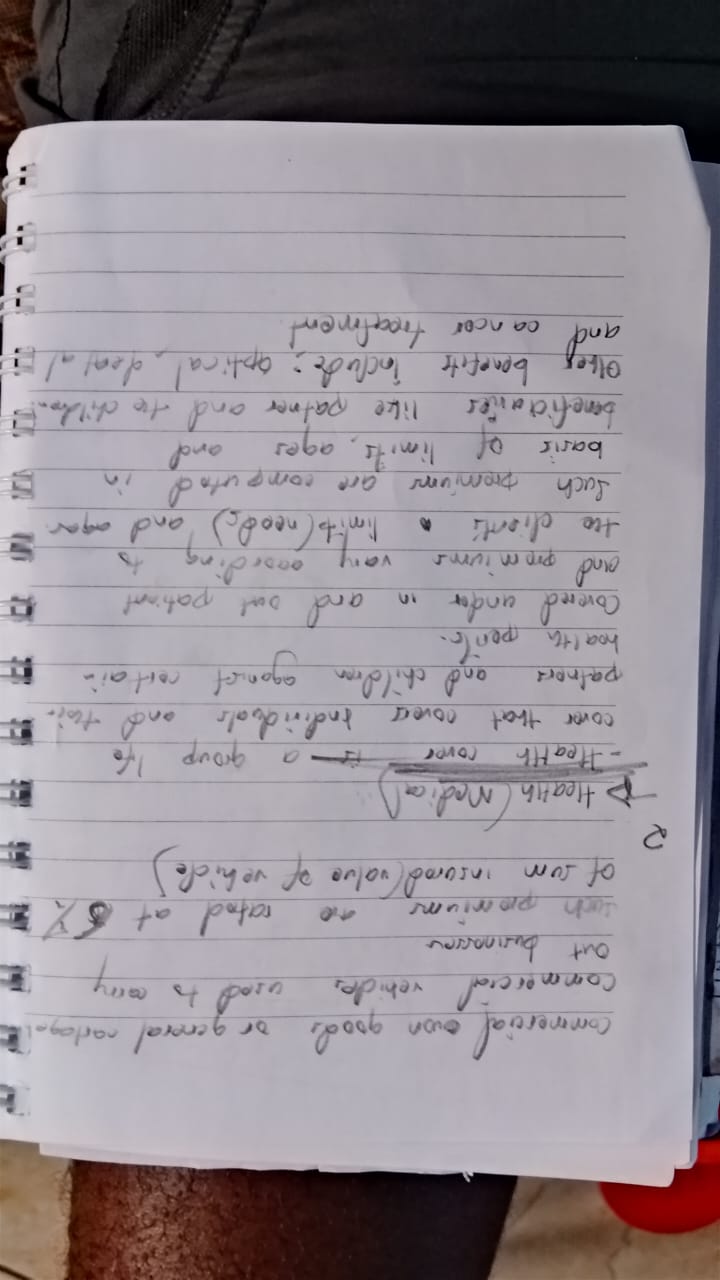 commercial own goods or general cartage
commercial vehicles used to carry
out businesses
such premiums are rated at 5%
of sum insured (value of vehicle)
2
Health (Medical)
- Health cover is a group life
cover that covers individuals and their
patners and children against certain
health perils.
Covered under in and out patient
and premiums vary according to
the client's limits (needs) and ages
Such premiums are computed in
basis of limits, ages and
beneficiaries like patner and the children
Other benefits include: optical, dental
and cancer treatment